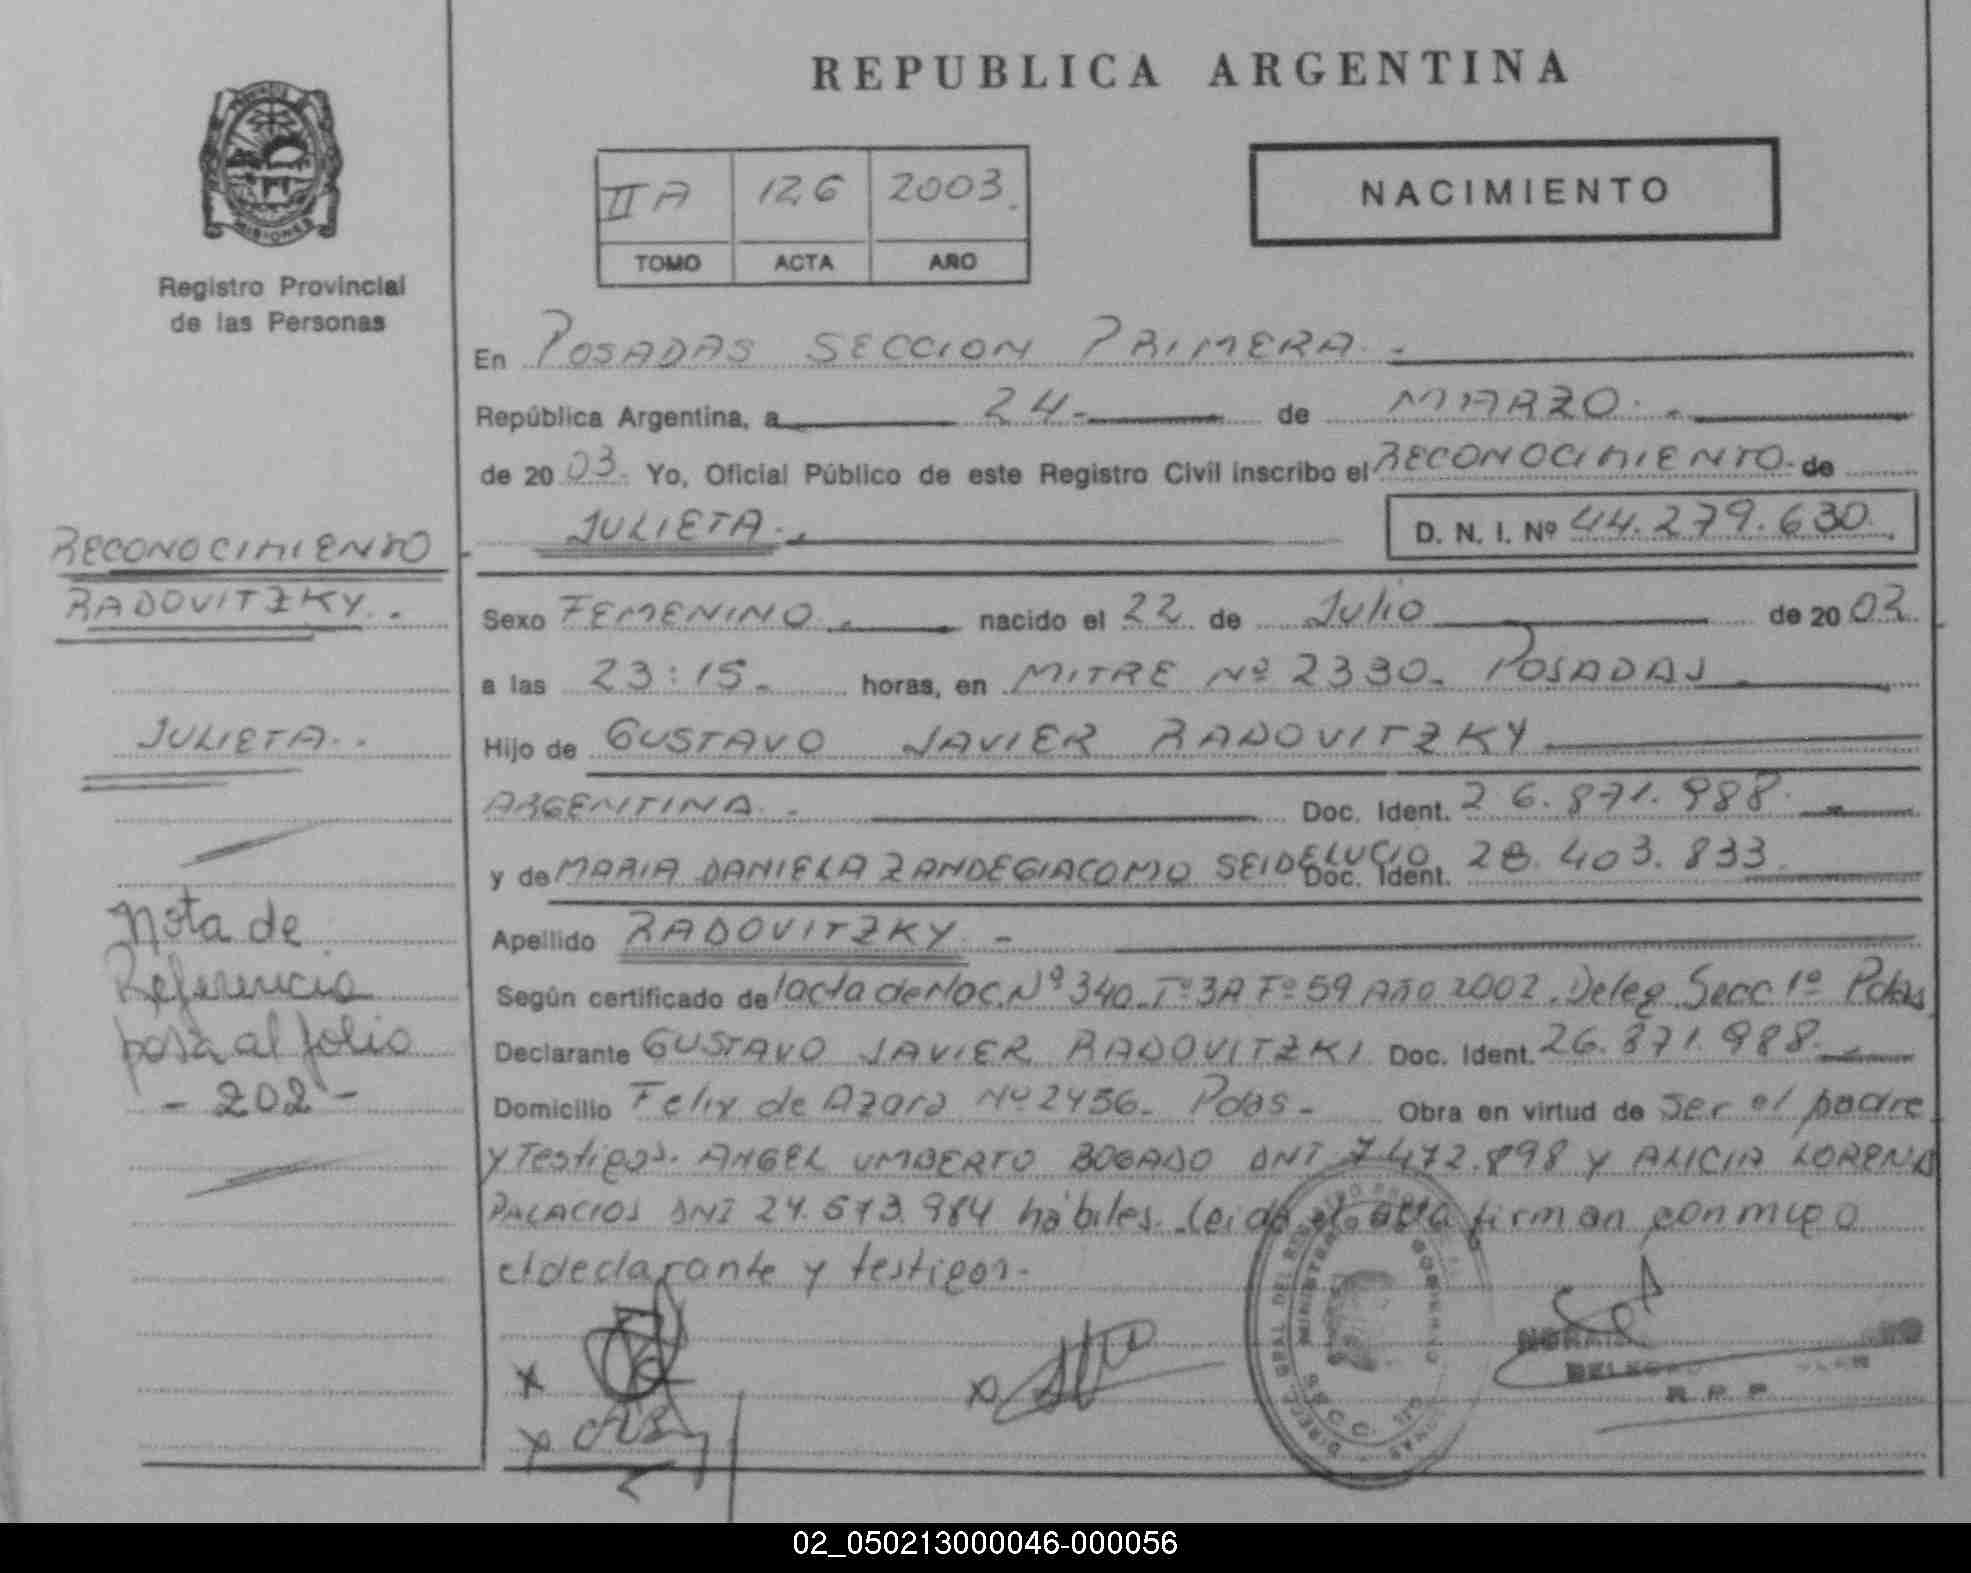 REPUBLICA ARGENTINA
MISIONES
Registro Provincial
de las Personas
II A 126 2003.
TOMO ACTA AÑO
NACIMIENTO
En POSADAS SECCION PRIMERA.-
República Argentina, a 24- de MARZO.-
de 20 03. Yo, Oficial Público de este Registro Civil inscribo el RECONOCIMIENTO.de
JULIETA.- D. N. I. Nº 44.279.630.
RECONOCIMIENTO
RADOVITZKY.-
JULIETA.-
Nota de
Referencia
pasa al folio
- 202 -
Sexo FEMENINO.- nacido el 22 de Julio de 20 02.
a las 23:15.- horas, en MITRE Nº 2330. POSADAS.
Hijo de GUSTAVO JAVIER RADOVITZKY
ARGENTINA.- Doc. Ident. 26.871.988.-
y de MARIA DANIELA ZANDEGIACOMO SEIDELUCIO Doc. Ident. 28.403.833.
Apellido RADOVITZKY.-
Según certificado de l'acta de Nac. Nº 340 Tº 3A Fº 59 Año 2002. Deleg. Secc. 1º Pdas
Declarante GUSTAVO JAVIER RADOVITZKI Doc. Ident. 26.871.988.-
Domicilio Felix de Azara Nº 2456. Pdas- Obra en virtud de ser el padre
y Testigos. ANGEL UMBERTO BOGADO DNI 7.472.898 Y ALICIA LORENA
PALACIOS DNI 24.573.984 hábiles. Leida el acta firman conmigo
el declarante y testigos.
R. P. P
02_050213000046-000056